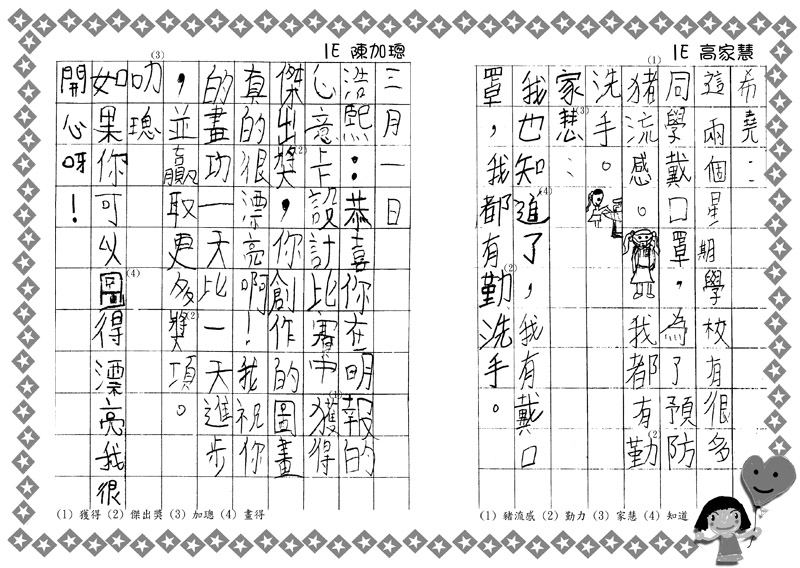 1E 高家慧
希堯：
這兩個星期學校有很多
同學戴口罩，為了預防
(1)猪流感。我都有勤(2)
洗手。
家慧(3)：
我也知進(4)了，我有戴口
罩，我都有勤(2)洗手。
(1) 豬流感 (2) 勤力 (3) 家慧 (4) 知道
1E 陳加璁
三月一日
浩熙：恭喜你在明報的
心意卡設計比賽中獲(1)得
傑出獎(2)，你創作的圖畫
真的很漂亮啊！我祝你
的畫功一天比一天進步
，並贏取更多獎(2)項。
(3)叻璁
如果你可以圖(4)得漂亮我很
開心呀！
(1) 獲得 (2) 傑出獎 (3) 加璁 (4) 畫得